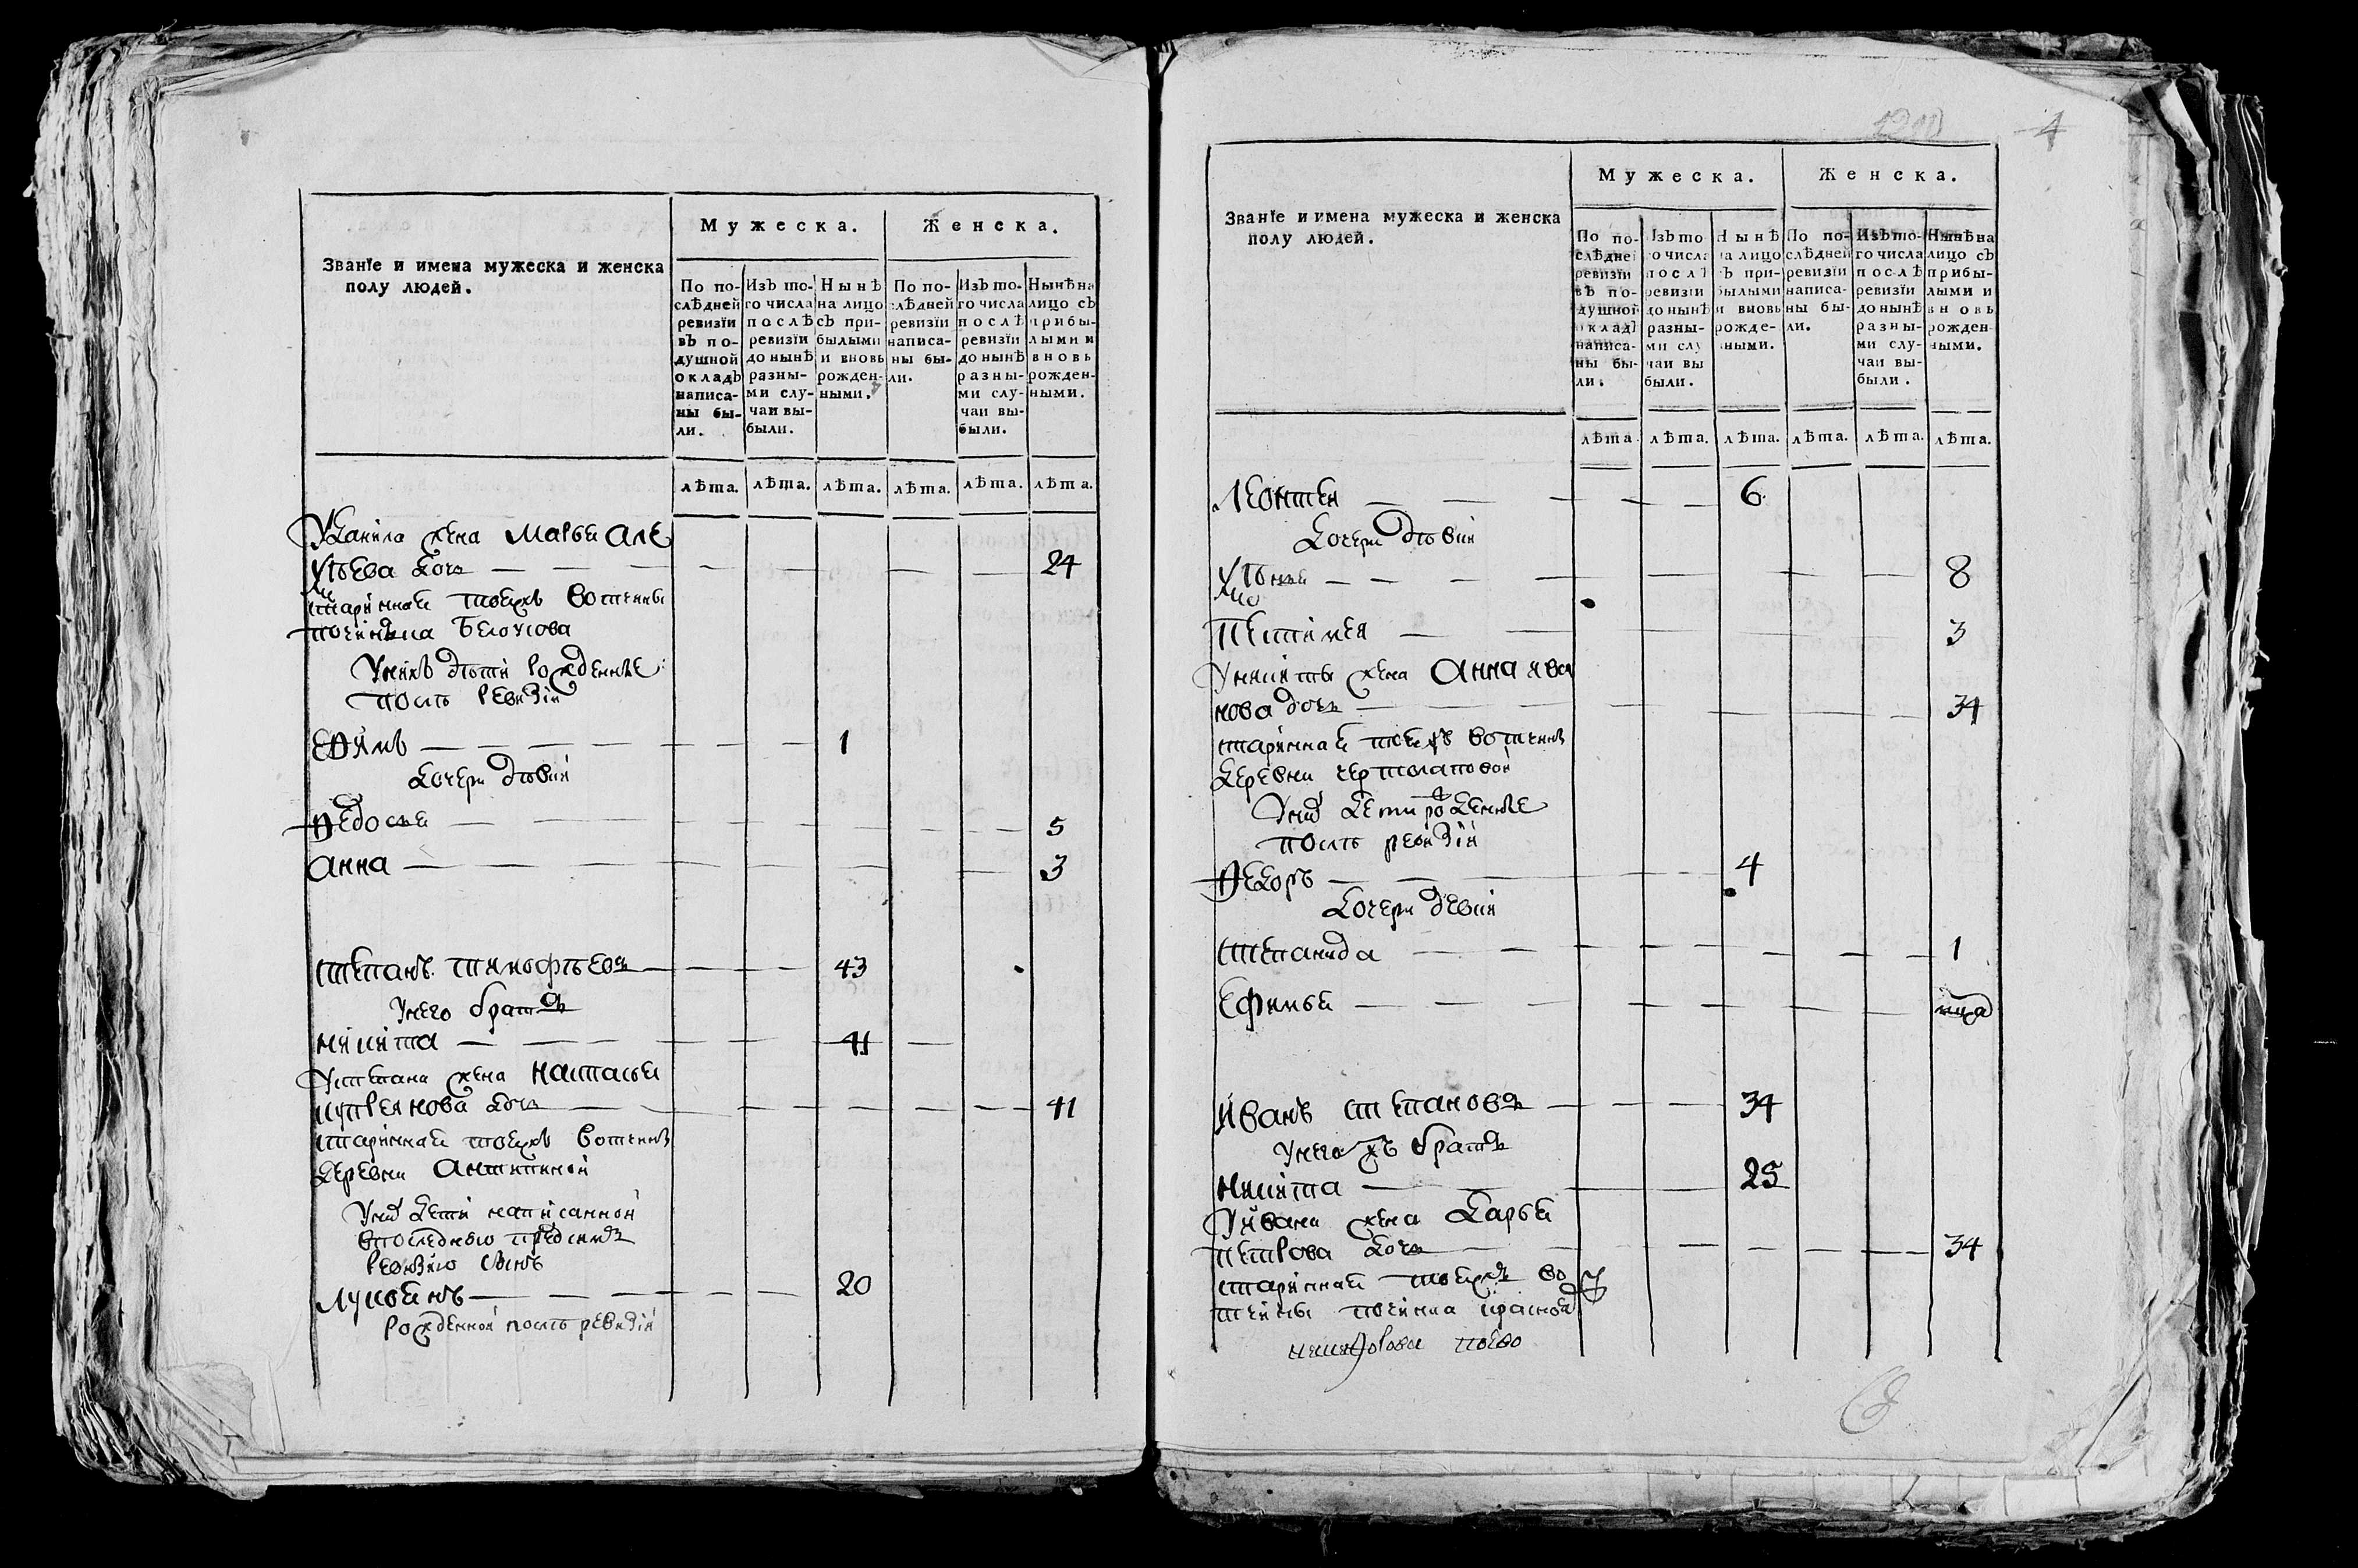 Званїе и имена мужеска и женска
полу людей.
Мужеска.
Женска.
По по-
слѣдней
ревизїи
въ по-
душной
окладъ
написа-
ны бы-
ли.
Изъ то-
го числа
послѣ
ревизїи
до нынѣ
разны-
ми слу-
чаи вы-
были.
Нынѣ
на лицо
съ при-
былыми
и вновь
рожден-
ными.
По по-
слѣдней
ревизїи
написа-
ны бы-
ли.
Изъ то-
го числа
послѣ
ревизїи
до нынѣ
разны-
ми слу-
чаи вы-
были.
Нынѣ на
лицо съ
прибы-
лыми и
вновь
рожден-
ными.
лѣта. лѣта. лѣта. лѣта. лѣта. лѣта.
Уданила жена Марья Але
дочь 24
старинная тоежъ вотчины
починка Белоусова
Унихъ дѣти рожденные
послѣ ревизіи
Ефимъ 1
дочери дѣвки
Ѳедосья 5
Анна 3
Степанъ Тимофѣевъ 43
Унего братъ
Никита 41
Устепана жена Настасья
Куприянова дочь 41
старинная тоежъ вотчины
деревни Антипиной
Унихъ дети написанной
впоследнюю предъ симъ
ревизию сынъ
Лукоянъ 20
рожденной послѣ ревизіи
4
Званїе и имена мужеска и женска
полу людей.
Мужеска.
Женска.
По по-
слѣдней
ревизїи
въ по-
душной
окладъ
написа-
ны бы-
ли.
Изъ то
го числа
послѣ
ревизїи
до нынѣ
разны-
ми слу
чаи вы
были.
Нынѣ
на лицо
съ при-
былыми
и вновь
рожде-
нными.
По по-
слѣдней
ревизїи
написа-
ны бы-
ли.
Изъ то-
го числа
послѣ
ревизїи
до нынѣ
разны-
ми слу-
чаи вы-
были.
Нынѣ на
лицо съ
прибы-
лыми и
вновь
рожден-
ными.
лѣта. лѣта. лѣта. лѣта. лѣта. лѣта.
Леонтей 6
дочери дѣвки
8
3
Уникиты жена Анна Ива
нова дочь 34
старинная тоежъ вотчины
деревни Чертолаповой
Унихъ дети рожденные
послѣ ревизіи
Ѳедоръ 4
дочери девки
Степанида 1
Ефимья
Иванъ Степановъ 34
Унегожъ братъ
Никита 25
Уивана жена Дарья
Петрова дочь 34
старинная тоежъ во
тчины починка
Никифорова тоево